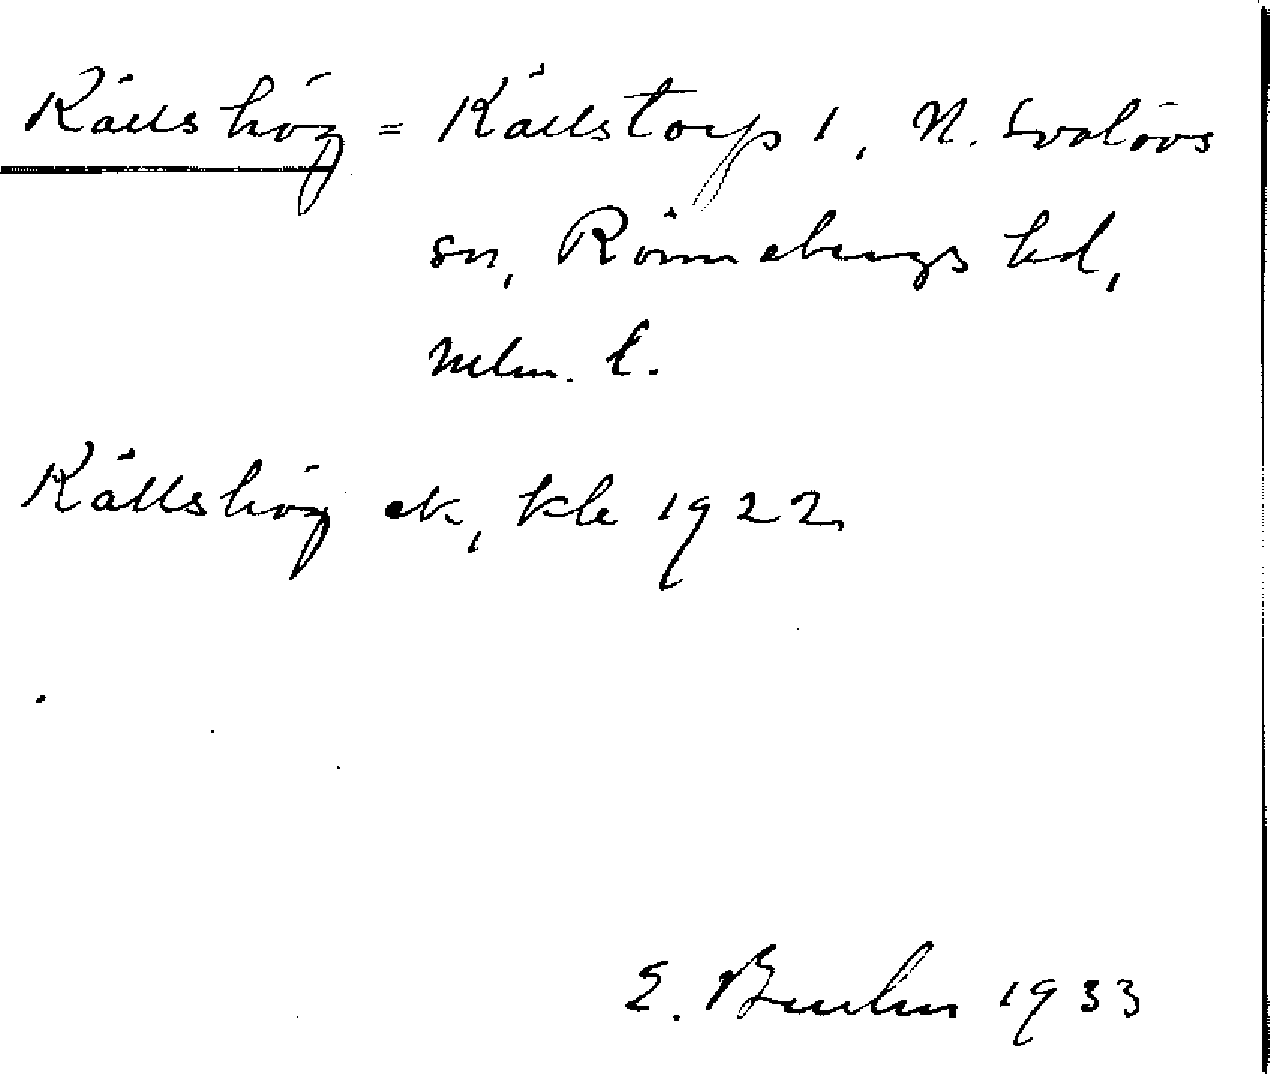 Källshög = Källstorp 1, N. Svalövs
sn, Rönnebergs hd,
Mlm. l.
Källshög ek, kle 1922
E. 1933